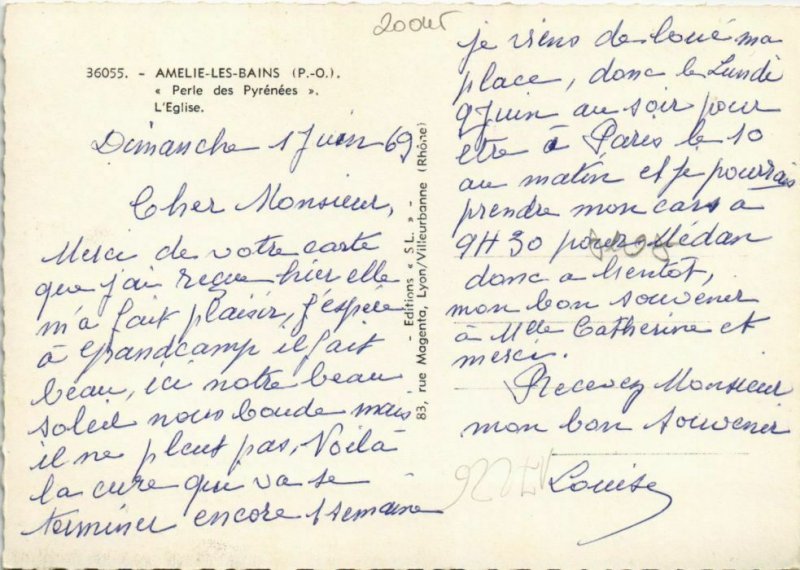 20 out
36055. - AMELIE-LES-BAINS (P.-O.).
« Perle des Pyrénées ».
L'Eglise.
Dimanche 1 Juin 69
Cher Monsieur,
Merci de votre carte
que j'ai reçue hier elle
m'a fait plaisir, j'espère
à Grandcamp il fait
beau, ici notre beau
soleil nous boude mais
il ne pleut pas, Voilà
la cure qui va se
terminer encore 1 semaine
- Editions « S.L. » -
83, rue Magenta, Lyon/Villeurbanne (Rhône)
je viens de loué ma
place, donc le Lundi
9 Juin au soir pour
etre à Paris le 10
au matin et je pourrais
prendre mon cars a
9H30 pour Médan
donc a bientot,
mon bon souvenir
à Mlle Catherine et
merci.
Recevez Monsieur
mon bon souvenir
Louise